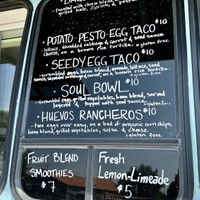 · POTATO · PESTO · EGG TACO $10
lettuce, shredded cabbage & carrot & seed sauce
cheese, on a brown rice tortilla. · gluten free
· SEEDY EGG TACO · $10
scrambled eggs, bean blend, avocado, lettuce, seed
sauce, shredded cabbage & carrot, on a brown rice tortilla.
SOUL BOWL · $10
scrambled eggs, grilled vegetables, bean blend, served
layered & topped with seed sauce.
· HUEVOS RANCHEROS · $10
two eggs over easy, on a bed of organic corn chips,
bean blend, grilled vegetables, salsa & cheese
gluten free
FRUIT BLEND
SMOOTHIES
$7
Fresh
Lemon-Limeade
$5